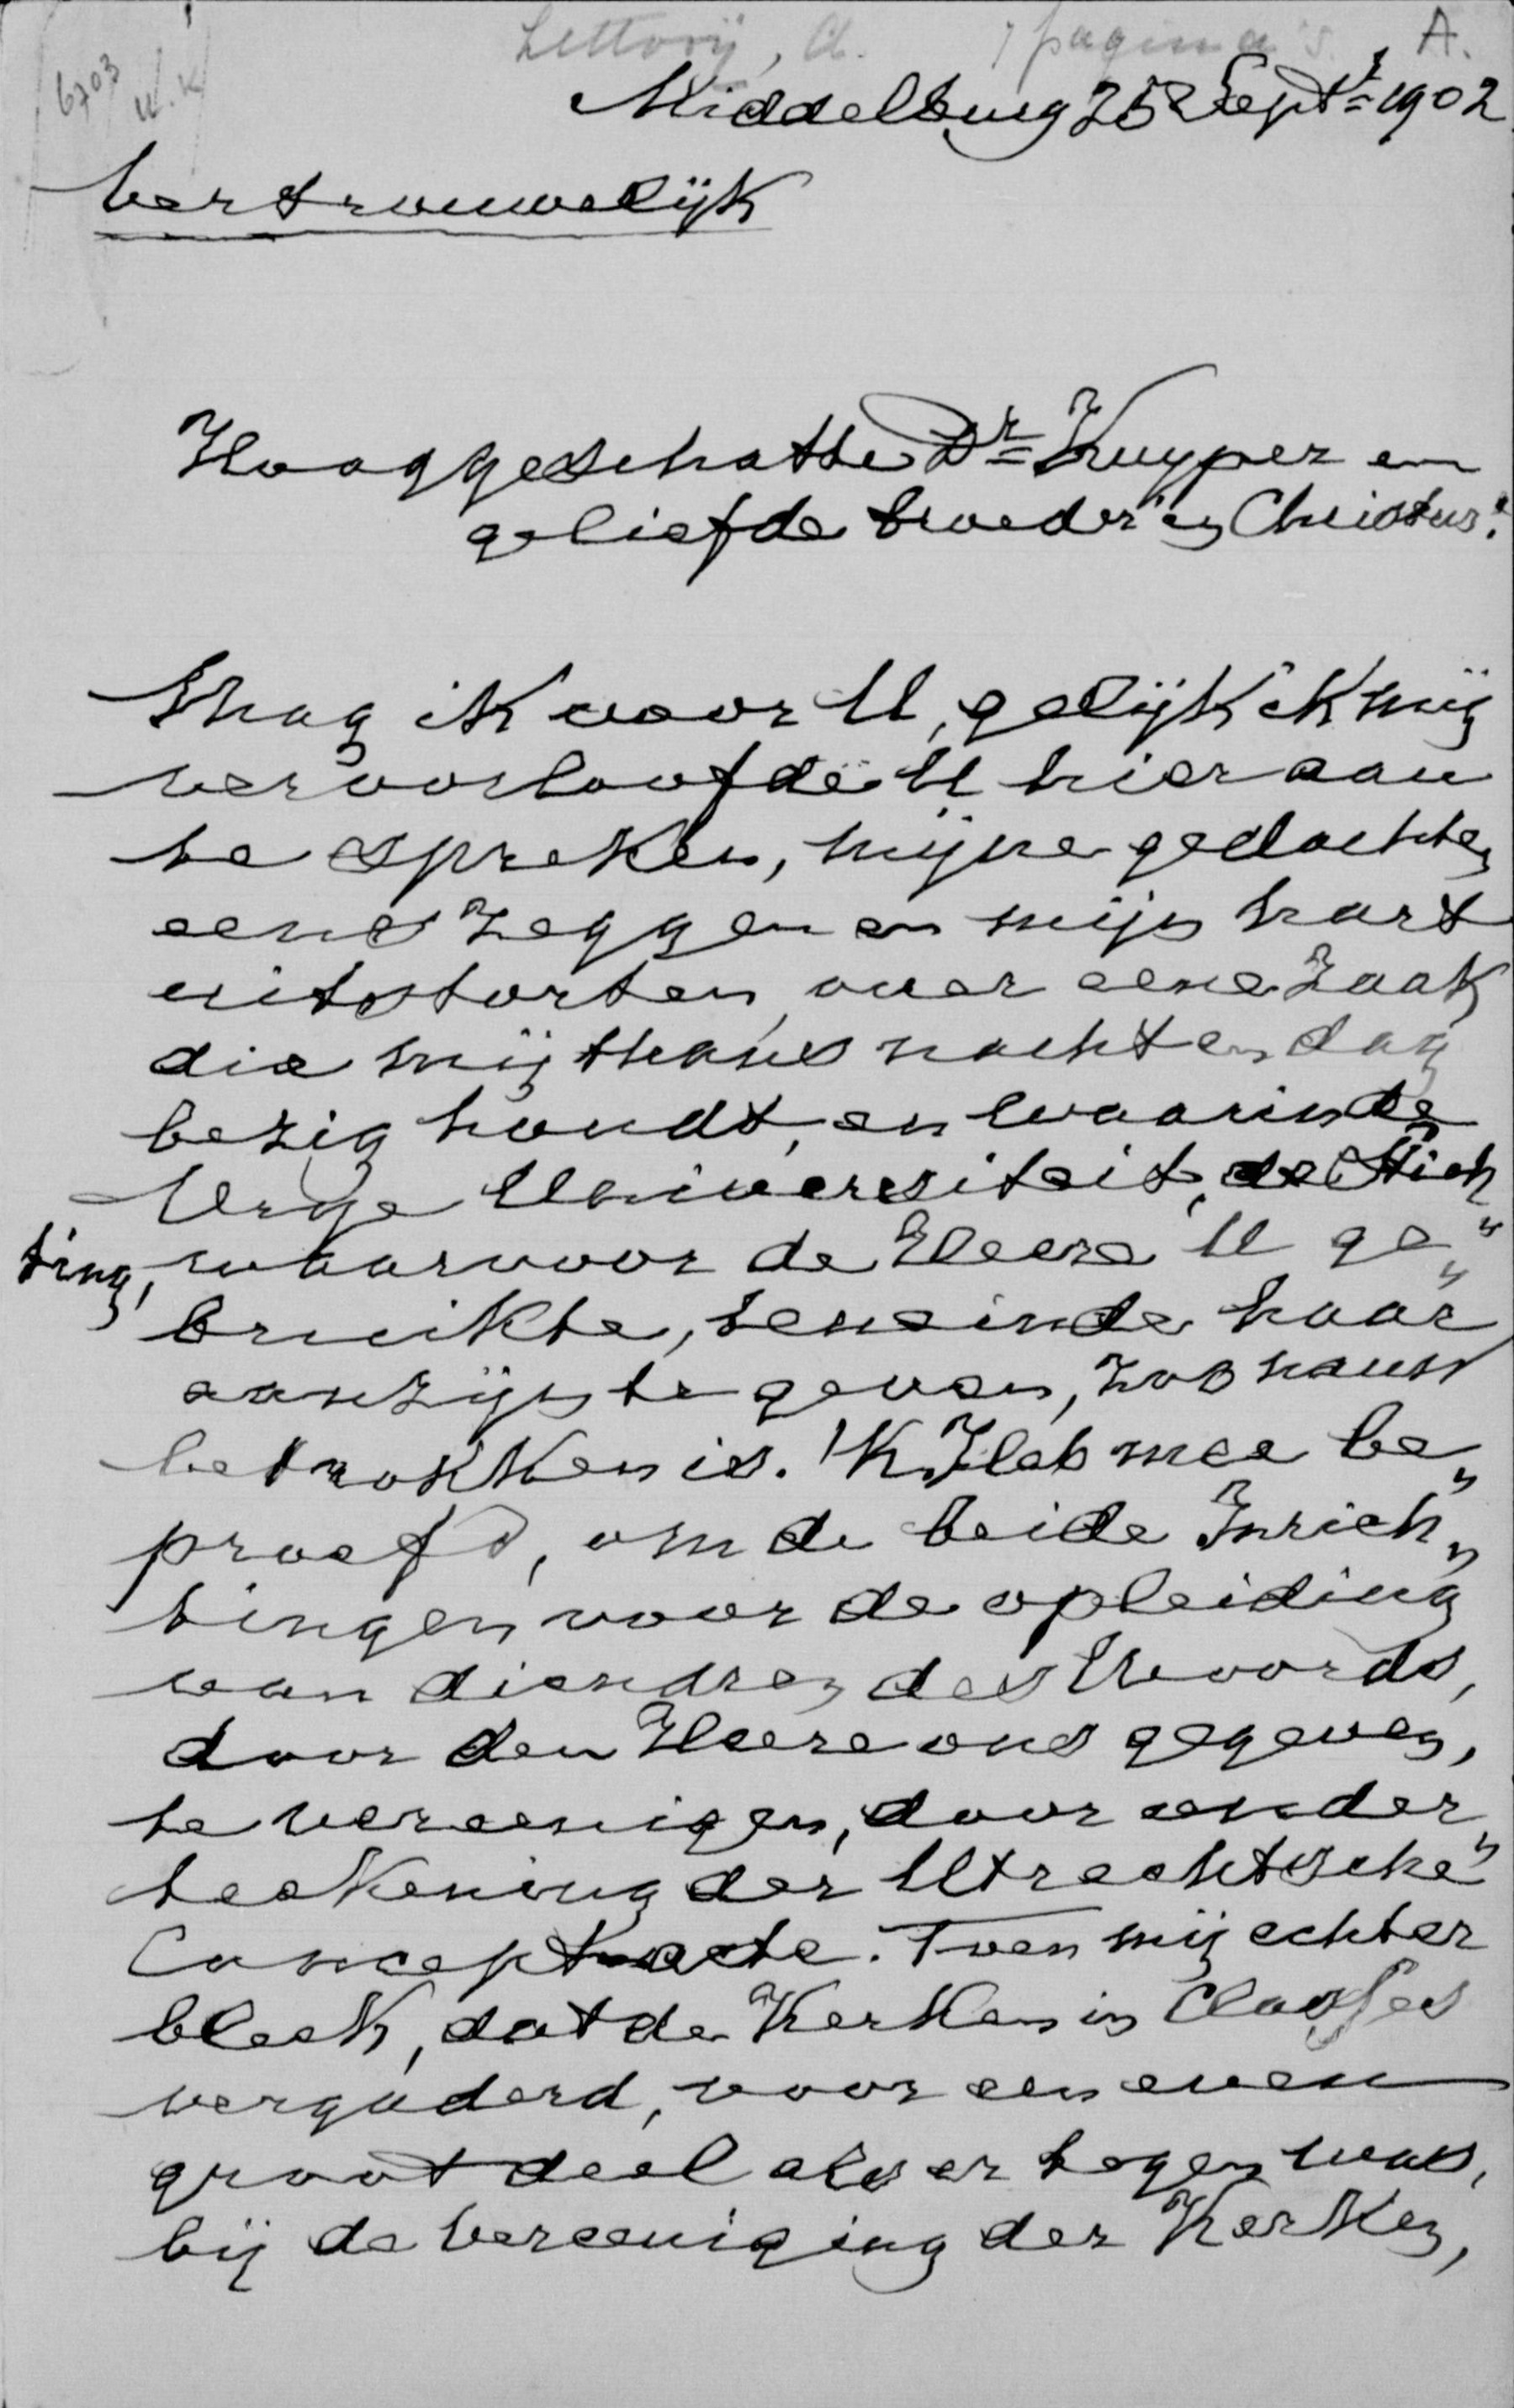 Littooij, A. 7 pagina's. A.
6703
U.K
Middelburg 25 Sept.r 1902
Vertrouwelijk
Hooggeschatte Dr Kuyper en
geliefde broeder in Christus!
Mag ik voor U, gelijk ik mij
veroorloofde U hieraan
te spreken, mijne gedachten
eens zeggen en mijn hart
uitstorten, over eene zaak,
die mij thans nacht en dag
bezig houdt, en waarin de
Vrije Universiteit, de Stich
ting, waarvoor de Heere U ge„
bruikte, teneinde haar
aanzijn te geven, zoo nauw
betrokken is. 'K Heb mee be„
proefd, om de beide Inrich„
tingen voor de opleiding
van dienaren des Woords,
door den Heere ons gegeven,
te vereenigen, door onder„
teekening der Utrechtsche
Conceptacte. Toen mij echter
bleek, dat de Kerken in Classes
vergaderd, voor een even
groot deel als er tegen was,
bij de vereeniging der Kerken,